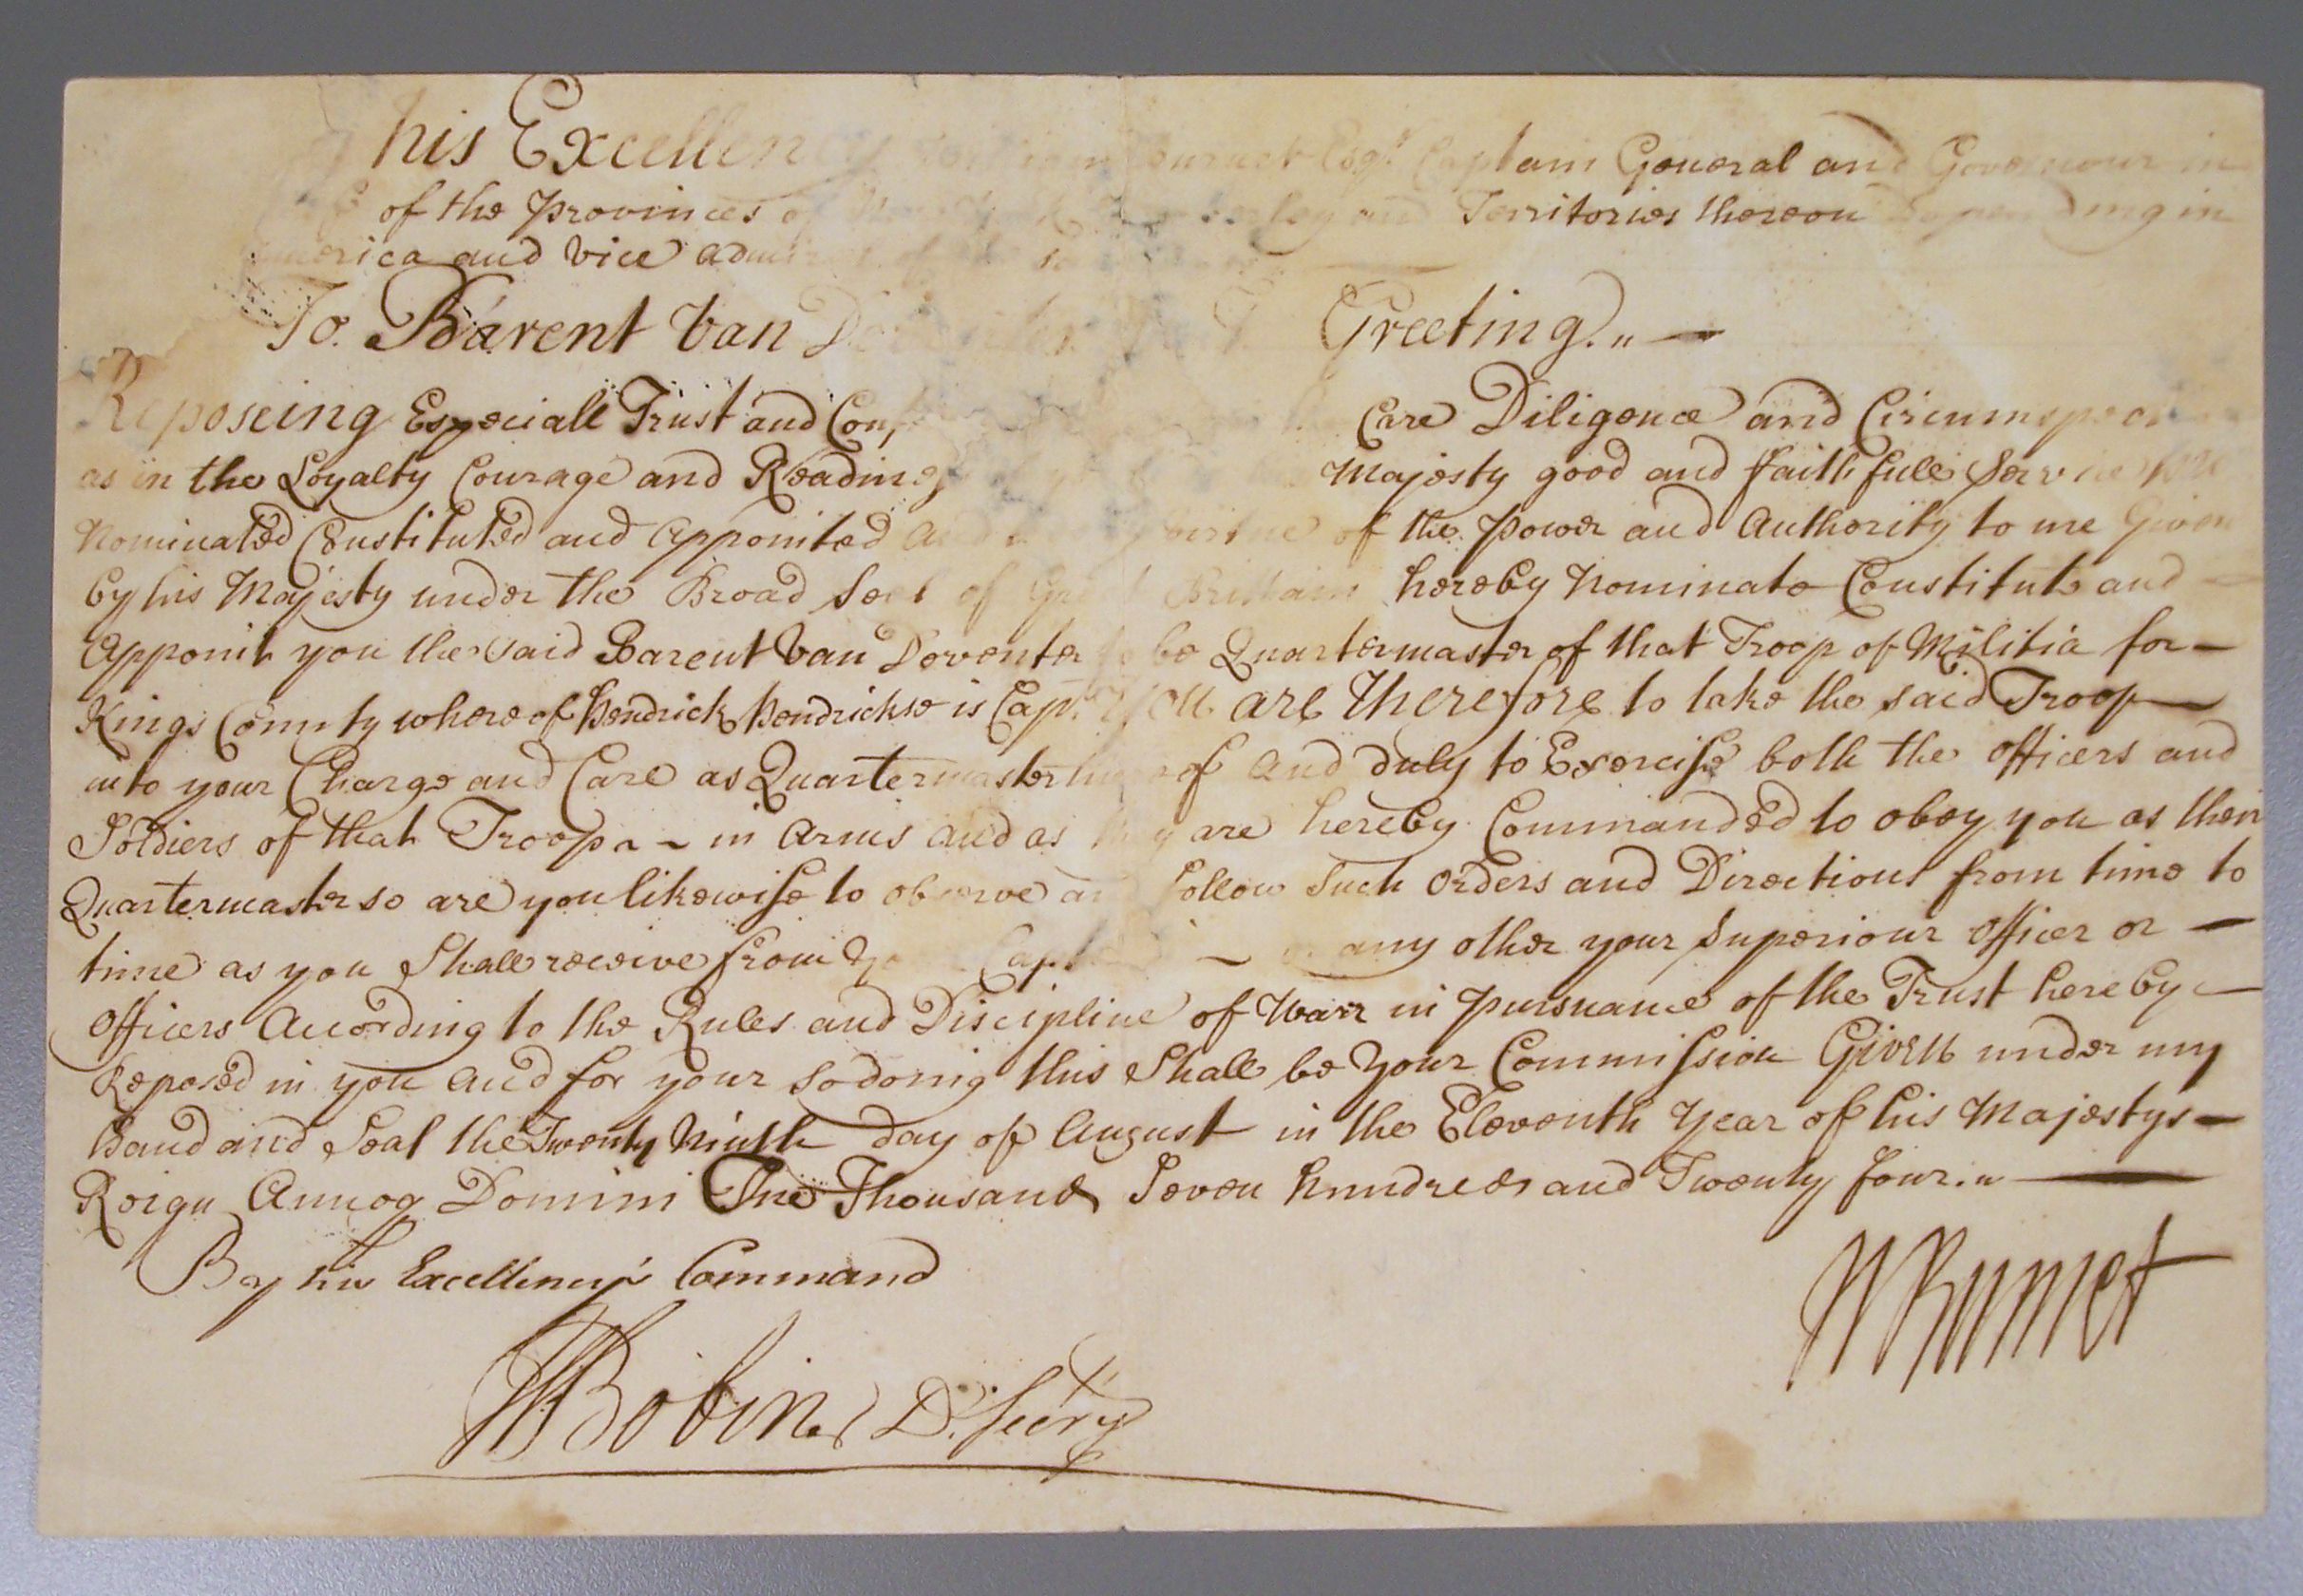 his Excellen Burnet Esqr. Captain General and Governour in
of the Provinces of and Territories thereon Depending in
America and Vice Admir
To Barent Van Greeting.
Reposeing Especiall Trust and Conf Care Diligence and Circumspec
as in the Loyalty Courage and Readine Majesty good and faithfull Service
Nominated Constituted and Appointed virtue of the Power and Authority to me Given
by his Majesty under the Broad Seal of Great Brittain hereby Nominate Constitute and
Appoint you the said Barent Van Deventer to be Quartermaster of that Troop of Militia for
Kings County whereof Hendrick Hendrickse is Capt. You are therefore to take the said Troop
into your Charge and Care as Quartermaster thereof and duly to Exercise both the officers and
Soldiers of that Troop in Arms and as they are hereby Commanded to obey you as their
Quartermaster so are you likewise to observe and follow Such orders and Directions from time to
time as you Shall receive from your Capt or any other your Superiour officer or
officers According to the Rules and Discipline of Warr in pursuance of the Trust hereby
Reposed in you and for your so doing this Shall be Your Commission Given under my
hand and Seal the Twenty Ninth day of August in the Eleventh Year of his Majestys
Reign Annoq Domini One Thousand Seven hundred and Twenty four.
By his Excellency's Command
WBurnet
Bobin D. Secry